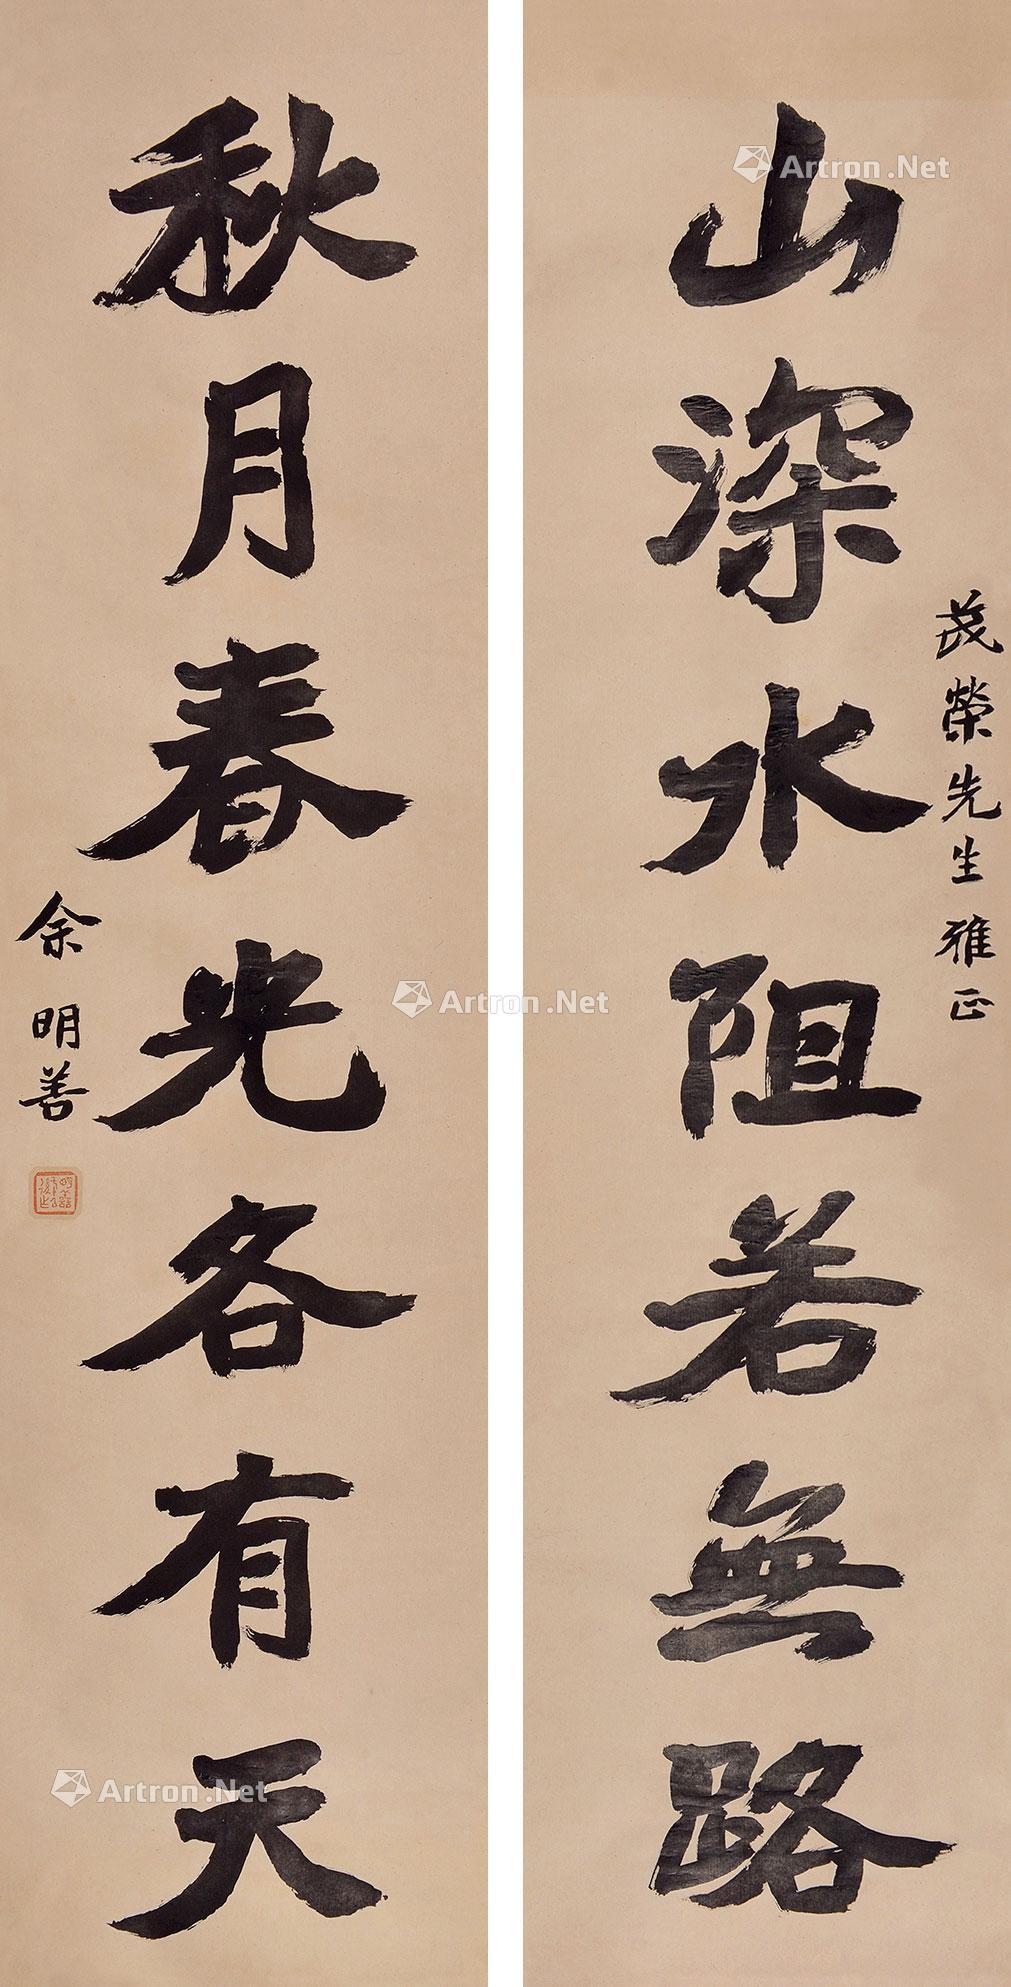 茂榮先生雅正
山深水阻若無路
秋月春光各有天
余明善
Artron.Net
Artron.Net
Artron.Net